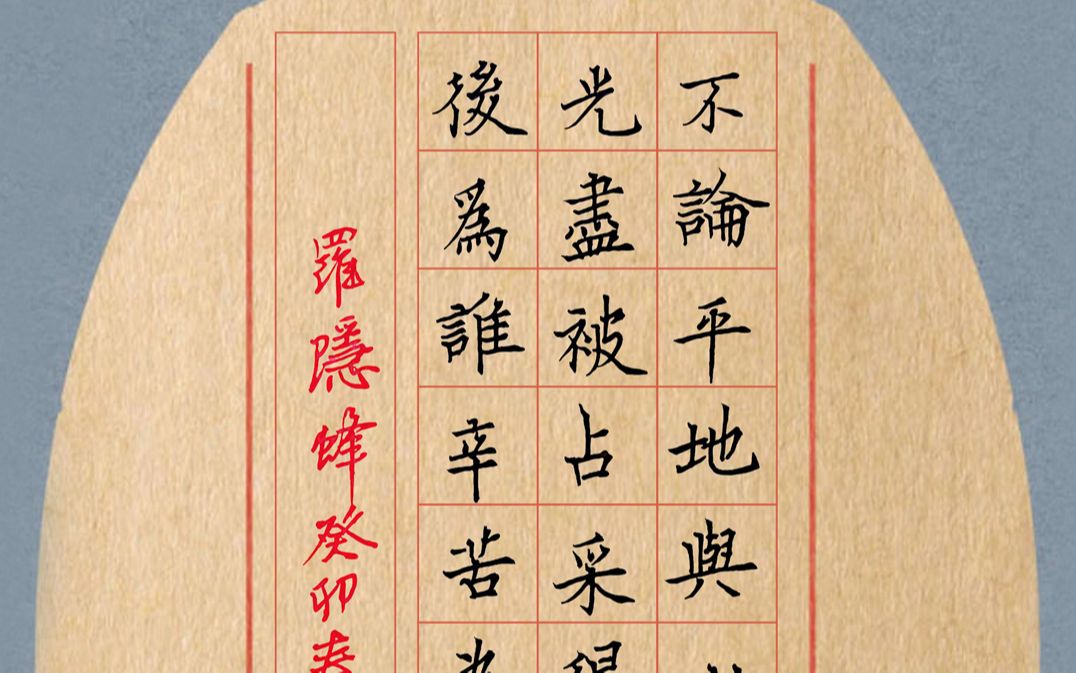 不論平地與
光盡被占采
後為誰辛苦
羅隱蜂癸卯春